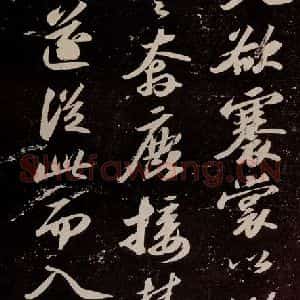 欲褰裳以
奔塵接
道從此而入
Shufawang.cn